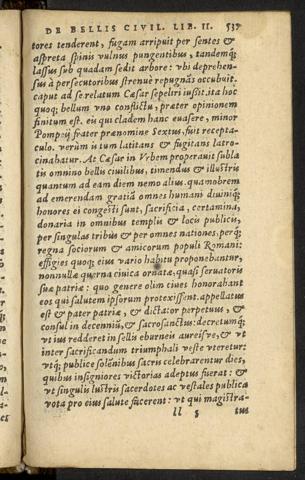 DE BELLIS CIVIL. LIB. II. 537
tores tenderent, fugam arripuit per sentes &
aspreta spinis vulnus pungentibus, tandemq;
lassus sub quadam sedit arbore: vbi deprehen-
sus à persecutoribus strenuè repugnãs occubuit.
caput ad se relatum Cæsar sepeliri iussit. ita hoc
quoq; bellum vno conflictu, præter opinionem
finitum est. ei qui cladem hanc euasere, minor
Pompeij frater prænomine Sextus, fuit recepta-
culo. verùm is tum latitans & fugitans latro-
cinabatur. At Cæsar in Vrbem properauit subla
tis omnino bellis ciuilibus, timendus & illustris
quantum ad eam diem nemo alius. quamobrem
ad emerendam gratiã omnes humani diuiniq;
honores ei congesti sunt, sacrificia, certamina,
donaria in omnibus templis & locis publicis,
per singulas tribus & per omnes nationes. perq;
regna sociorum & amicorum populi Romani:
effigies quoq; eius vario habitu proponebantur,
nonnullæ querna ciuica ornatæ, quasi seruatoris
suæ patriæ: quo genere olim ciues honorabant
eos qui salutem ipsorum protexissent. appellatus
est & pater patriæ, & dictator perpetuus, &
consul in decenniũ, & sacrosanctus: decretumq;
vt ius redderet in sellis eburneis aureisve, & vt
inter sacrificandum triumphali veste vteretur:
vtq; publice solēnibus sacris celebrarentur dies,
quibus insigniores victorias adeptus fuerat: &
vt singulis lustris sacerdotes ac vestales publica
vota pro eius salute facerent: vt qui magistra-
ll 5 tus